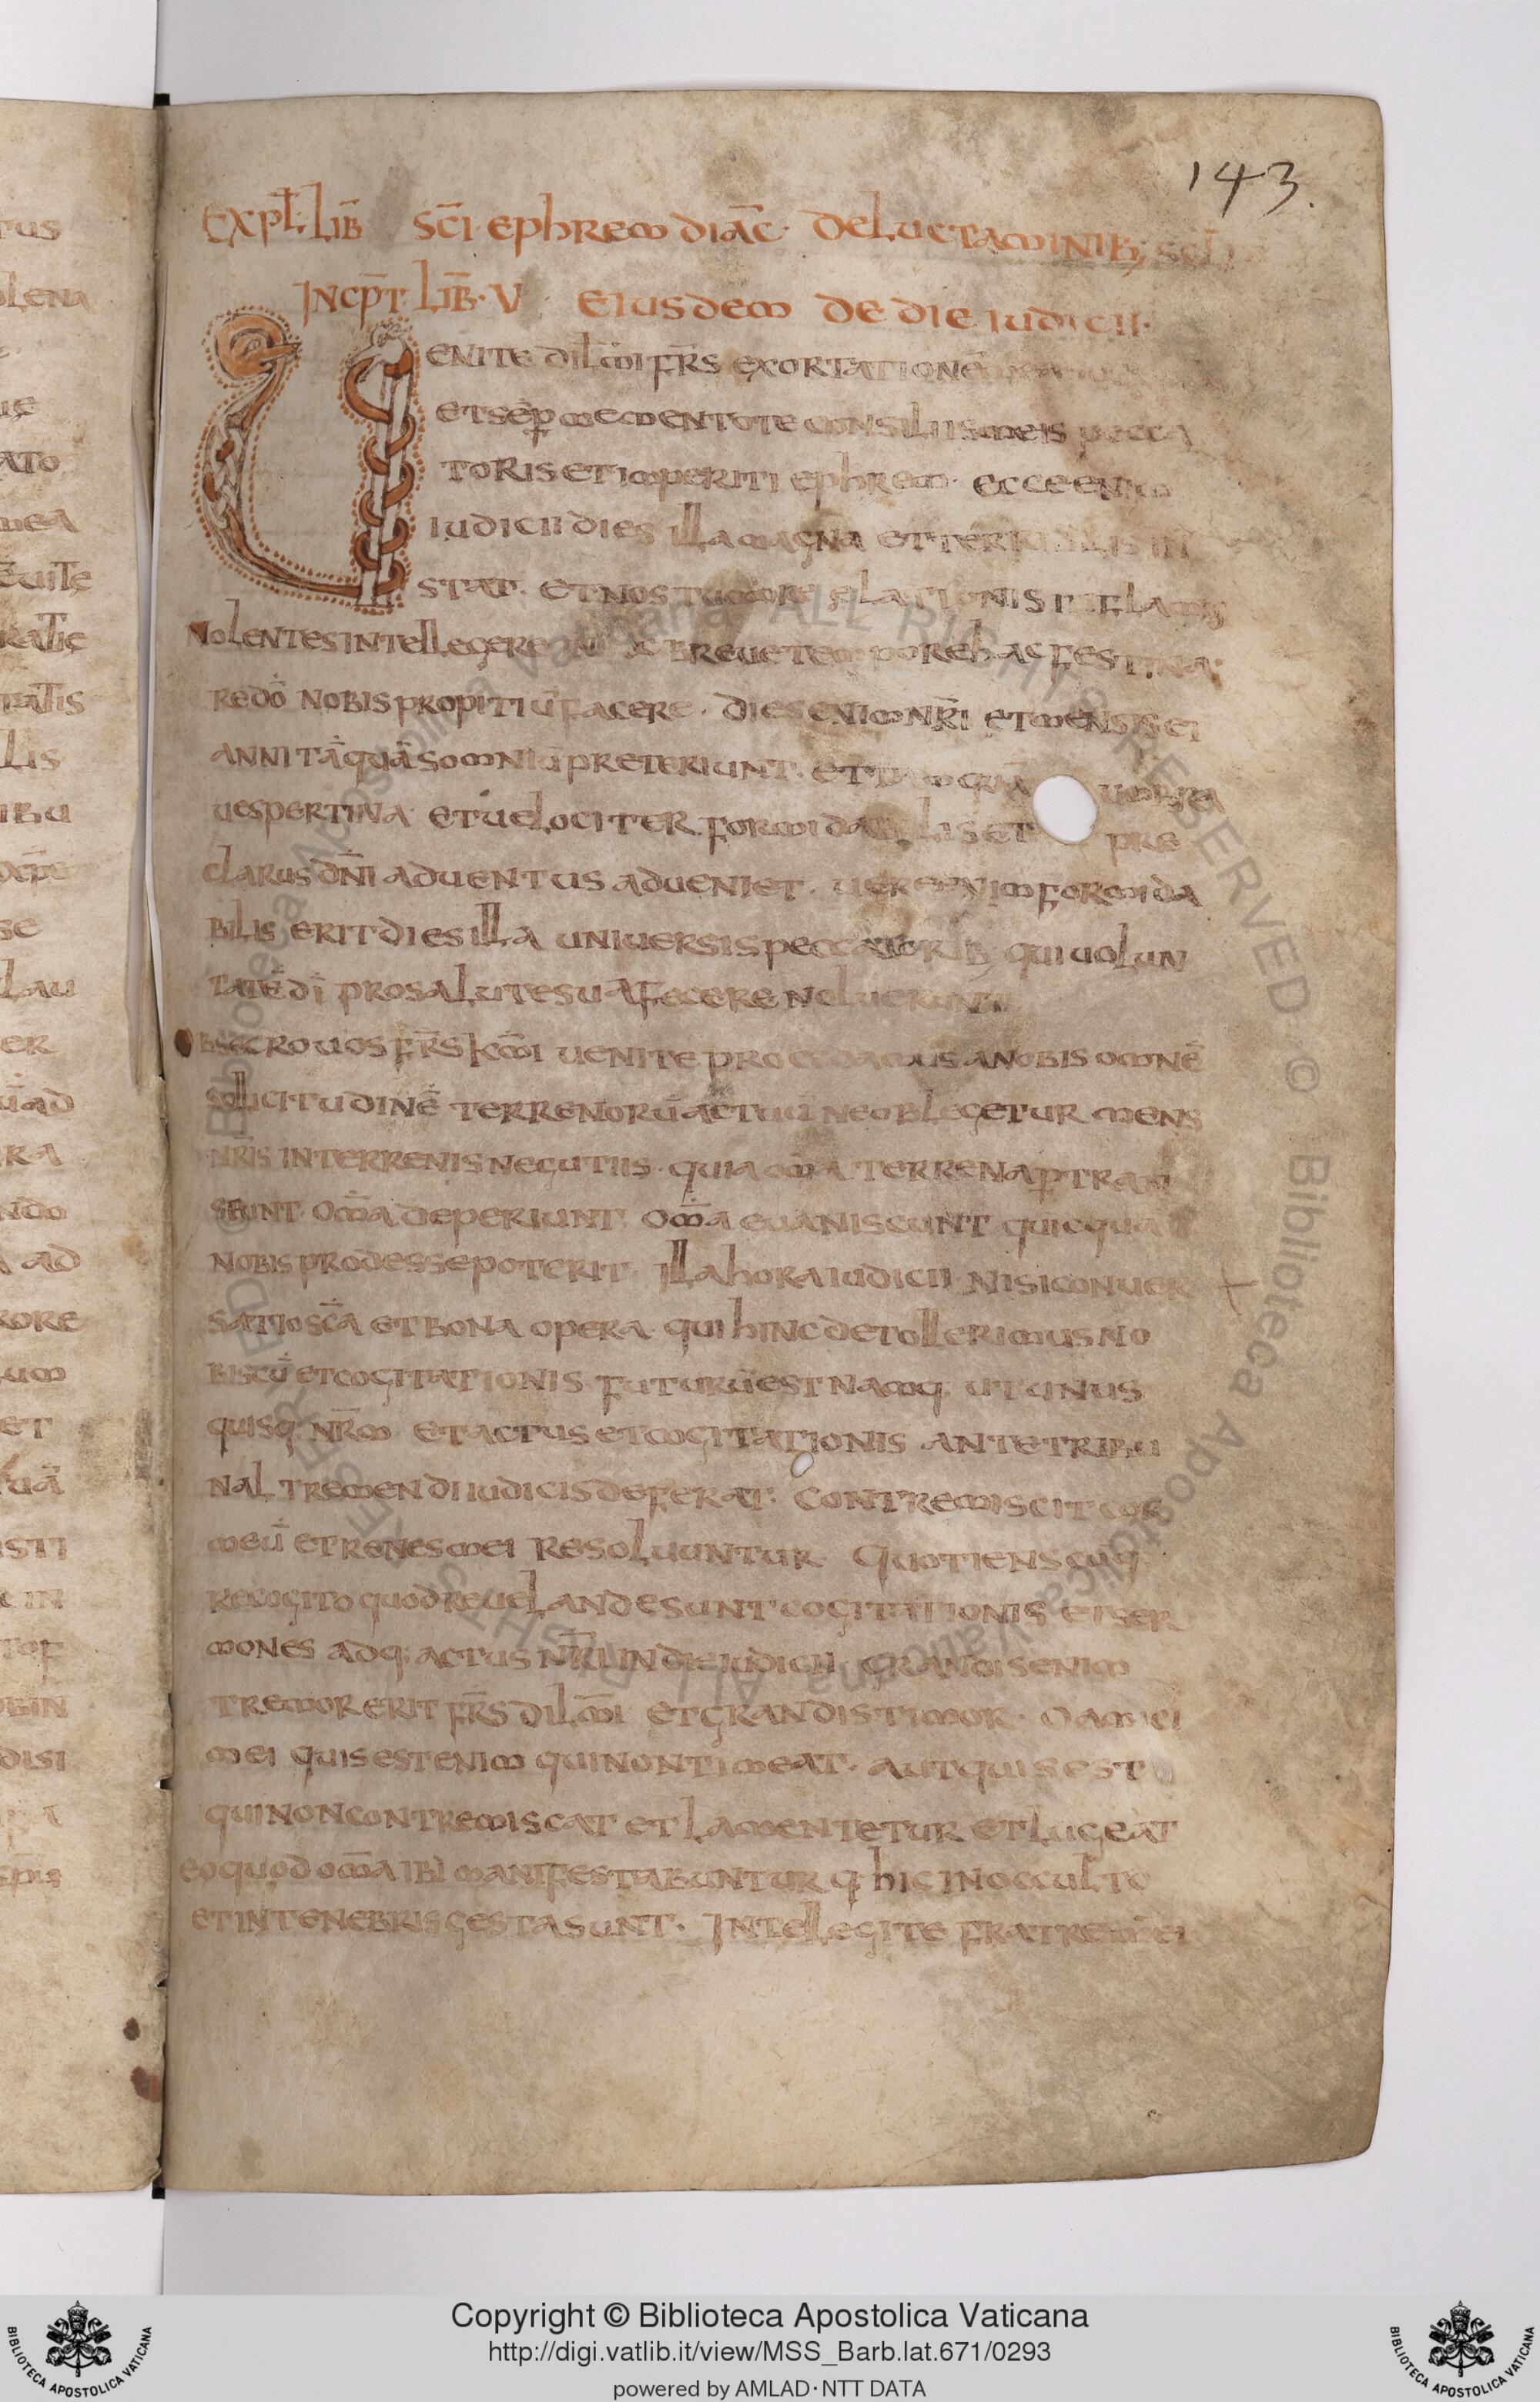 143.
EXPL̄. LIB̄ SC̄I EPHREM DIĀC. DE LUCTAMINIB;
INCP̄T. LIB̄. V. EIUSDEM DE DIE IUDICII.
UENITE DIL̄MI FR̄S EXORTATIONĒ
ETSEP̄ MEMENTOTE CONSILIIS MEIS PECCA
TORIS ET IMPERITI EPHREM. ECCE ENIM
IUDICII DIES ILLA MAGNA ET TERRIBILIS IN
STAT. ET NOS TUMORE ELATIONIS
NOLENTES INTELLEGERE BREUE TEMPORE HAC FESTINA
REDŌ NOBIS PROPITIŪ FACERE. DIES ENIM NR̄I ET MENSIS EI
ANNI TĀQUĀ SOMNIŪ PRETERIUNT. ET UMBRA
UESPERTINA ET UELOCITER FORMIDABILIS ET PRE
CLARUS DN̄I ADUENTUS ADUENIET. UERE ENIM FORMIDA
BILIS ERIT DIES ILLA UNIUERSIS PECCATORIB; QUI UOLUN
TATĒ DĪ PRO SALUTE SUA FECERE NOLUERUNT
OBSECRO UOS FR̄S KM̄I UENITE PROCEDAMUS A NOBIS OMNĒ
SOLLICITUDINĒ TERRENORŪ ACTUŪ NE OBLEGETUR MENS
NR̄IS IN TERRENIS NEGUTIIS. QUIA OM̄A TERRENA P̱TRAN
SEUNT. OM̄A DEPERIUNT. OM̄A EUANISCUNT QUICQUA
NOBIS PRODESSE POTERIT ILLA HORA IUDICII NISI CONUER +
SATIO SC̄A ET BONA OPERA. QUI HINC DETOLLERIMUS NO
BISCŪ ET COGITATIONIS. FUTURŪ EST NAMQ; UT UNUS
QUISQ; NR̄M ET ACTUS ET COGITATIONIS ANTE TRIBU
NAL TREMENDI IUDICIS DEFERAT. CONTREMISCIT COR
MEŪ ET RENES MEI RESOLUUNTUR QUOTIENSCŪQ;
RECOGITO QUOD REUELANDE SUNT COGITATIONIS ET SER
MONES ADQ; ACTUS NR̄I IN DIE IUDICII GRANDIS ENIM
TREMOR ERIT FR̄S DIL̄MI ET GRANDIS TIMOR. O AMICI
MEI QUIS EST ENIM QUI NON TIMEAT. AUT QUIS EST
QUI NON CONTREMISCAT ET LAMENTETUR ET LUGEAT
EO QUOD OM̄A IBI MANIFESTABUNTUR Q; HIC IN OCCULTO
ET IN TENEBRIS GESTA SUNT. INTELLEGITE FRATRE MEI
Copyright © Biblioteca Apostolica Vaticana
http://digi.vatlib.it/view/MSS_Barb.lat.671/0293
powered by AMLAD·NTT DATA
BIBLIOTECA APOSTOLICA VATICANA
BIBLIOTECA APOSTOLICA VATICANA